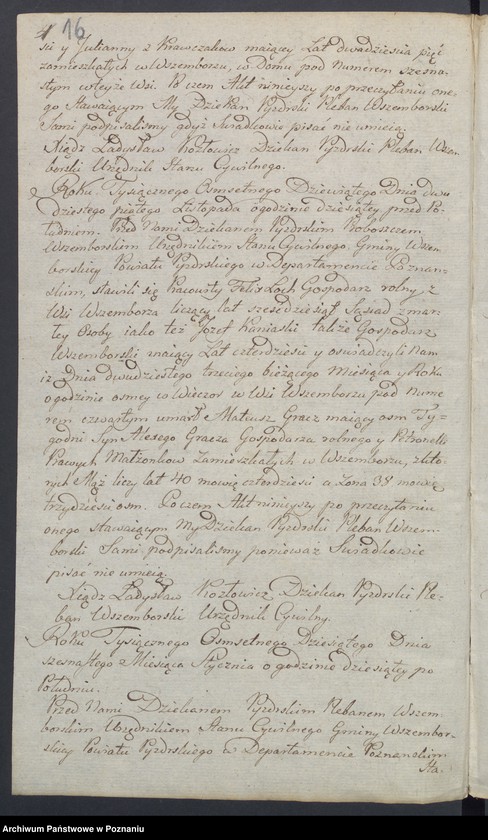 4 16
sii y Julianny z Krawczakow maiący Lat dwadziescia pięć
zamieszkałych w Wszemborzu, w Domu pod Numerem szesna-
stym w teyże Wsi. Po czem Akt ninieyszy po przeczytaniu one-
go Stawaiącym My Dziekan Pyzdrski Pleban Wszemborski
Sami podpisalismy gdyż Swiadkowie pisać nie umieią.
Xiądz Ladysław Kozłowicz Dziekan Pyzdrski Pleban Wszem-
borski Urzędnik Stanu Cywilnego.
Roku Tysiącznego Osmsetnego Dziewiątego Dnia dwu
dziestego piątego Listopada o godzinie dziesiątey przed Po-
łudniem. Przed Nami Dziekanem Pyzdrskim Proboszczem
Wszemborskim Urzędnikiem Stanu Cywilnego Gminy Wszem-
borskiey Powiatu Pyzdrskiego w Departamencie Poznan-
skim, stawili się Pracowity Felix Loch Gospodarz rolny z
Wsi Wszemborza liczący lat szescdziesiąt Sąsiad zmar-
tey Osoby iako też Jozef Kaniaski także Gospodarz
Wszemborski maiący Lat czterdziesci y oswiadczyli Nam
iż Dnia dwudziestego trzeciego bieżącego Miesiąca y Roku
o godzinie osmey w Wieczor w Wsi Wszemborzu pod Nume
rem czwartym umarł Mateusz Gracz maiący osm Ty-
godni Syn Alexego Gracza Gospodarza rolnego y Petronelli
Prawych Małżonkow zamieszkałych w Wszemborzu, z kto-
rych Mąż liczy lat 40 mowię czterdziesci a Zona 38 mowię
trzydziesci osm. Poczem Akt ninieyszy po przeczytaniu
onego stawaiącym My Dziekan Pyzdrski Pleban Wszem-
borski Sami podpisalismy ponieważ Swiadkowie
pisać nie umieią.
Xiądz Ladysław Kozłowicz Dziekan Pyzdrski Ple-
ban Wszemborski Urzędnik Cywilny.
Roku Tysiącznego Osmsetnego Dziesiątego Dnia
szesnastego Miesiąca Stycznia o godzinie dziesiątey po
Południu.
Przed Nami Dziekanem Pyzdrskim Plebanem Wszem-
borskim Urzędnikiem Stanu Cywilnego Gminy Wszembor-
skiey Powiatu Pyzdrskiego w Departamencie Poznanskim
Sta-
Archiwum Państwowe w Poznaniu
szukajwarchiwach.gov.pl